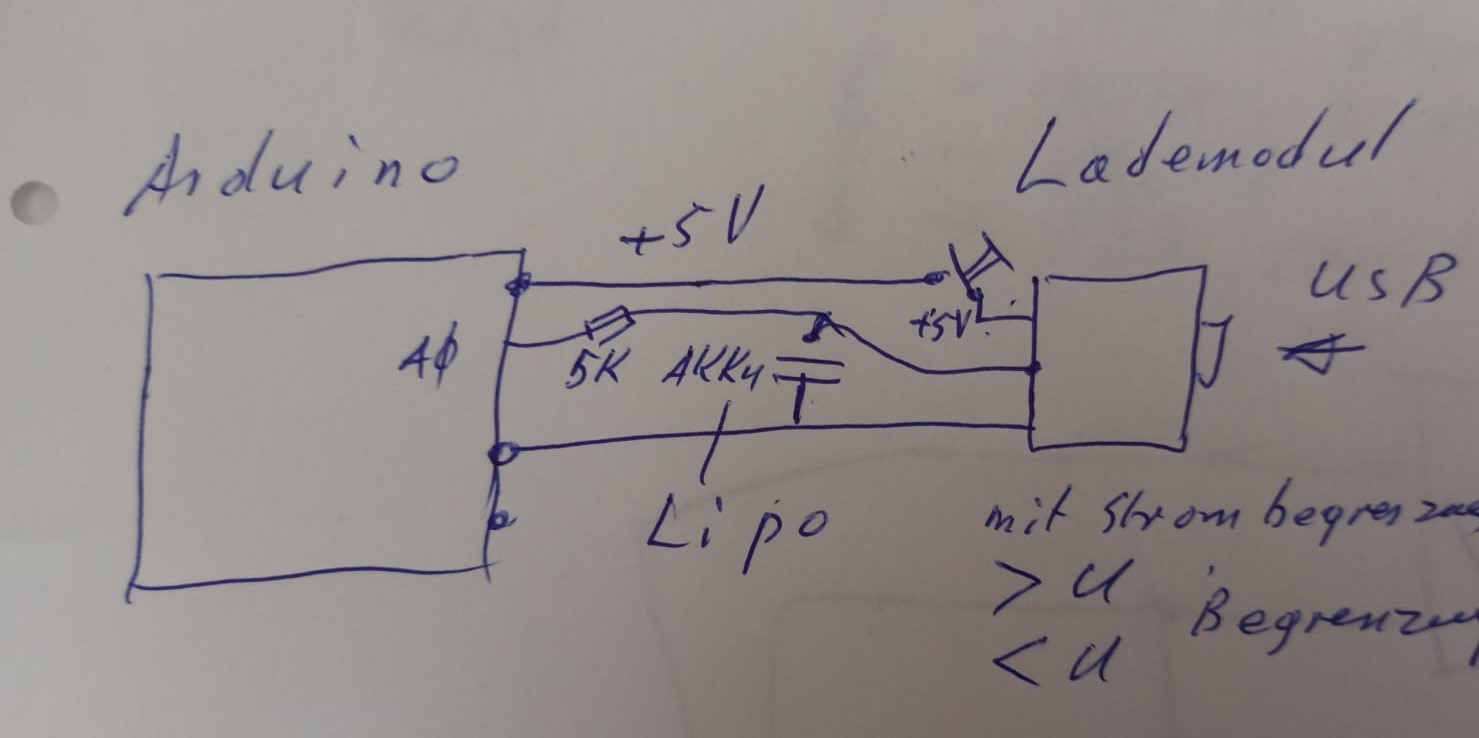 Arduino
Lademodul
+5V
USB
+5V
AΦ
5K
AKKu
Lipo
mit Strombegrenzu
> U
Begrenzu
< U